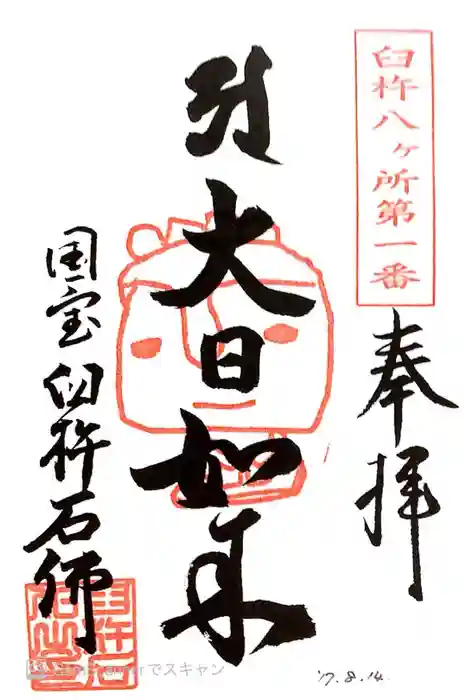 臼杵八ヶ所第一番
奉拝
大日如来
国宝臼杵石佛
'17.8.14.
でスキャン